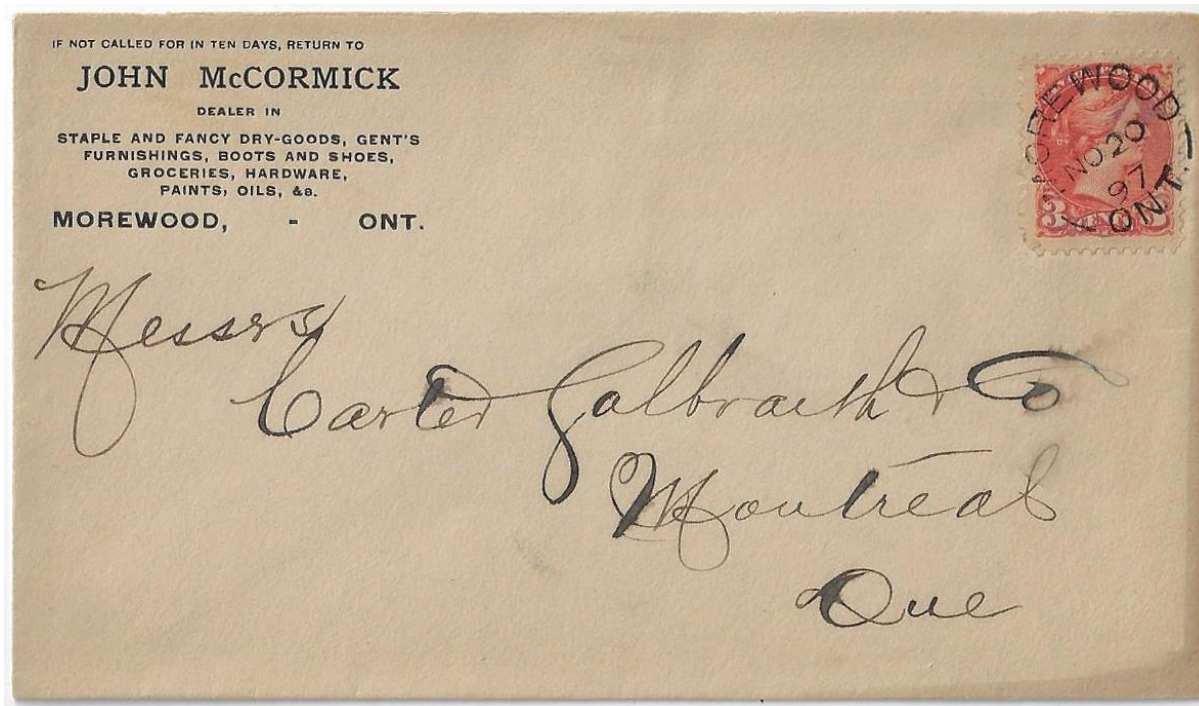 IF NOT CALLED FOR IN TEN DAYS, RETURN TO
JOHN McCORMICK
DEALER IN
STAPLE AND FANCY DRY-GOODS, GENT'S
FURNISHINGS, BOOTS AND SHOES,
GROCERIES, HARDWARE,
PAINTS, OILS, &c.
MOREWOOD, - ONT.
MOREWOOD
NO 20
97
ONT.
3
Messrs
Carter Galbraith & Co
Montreal
Que